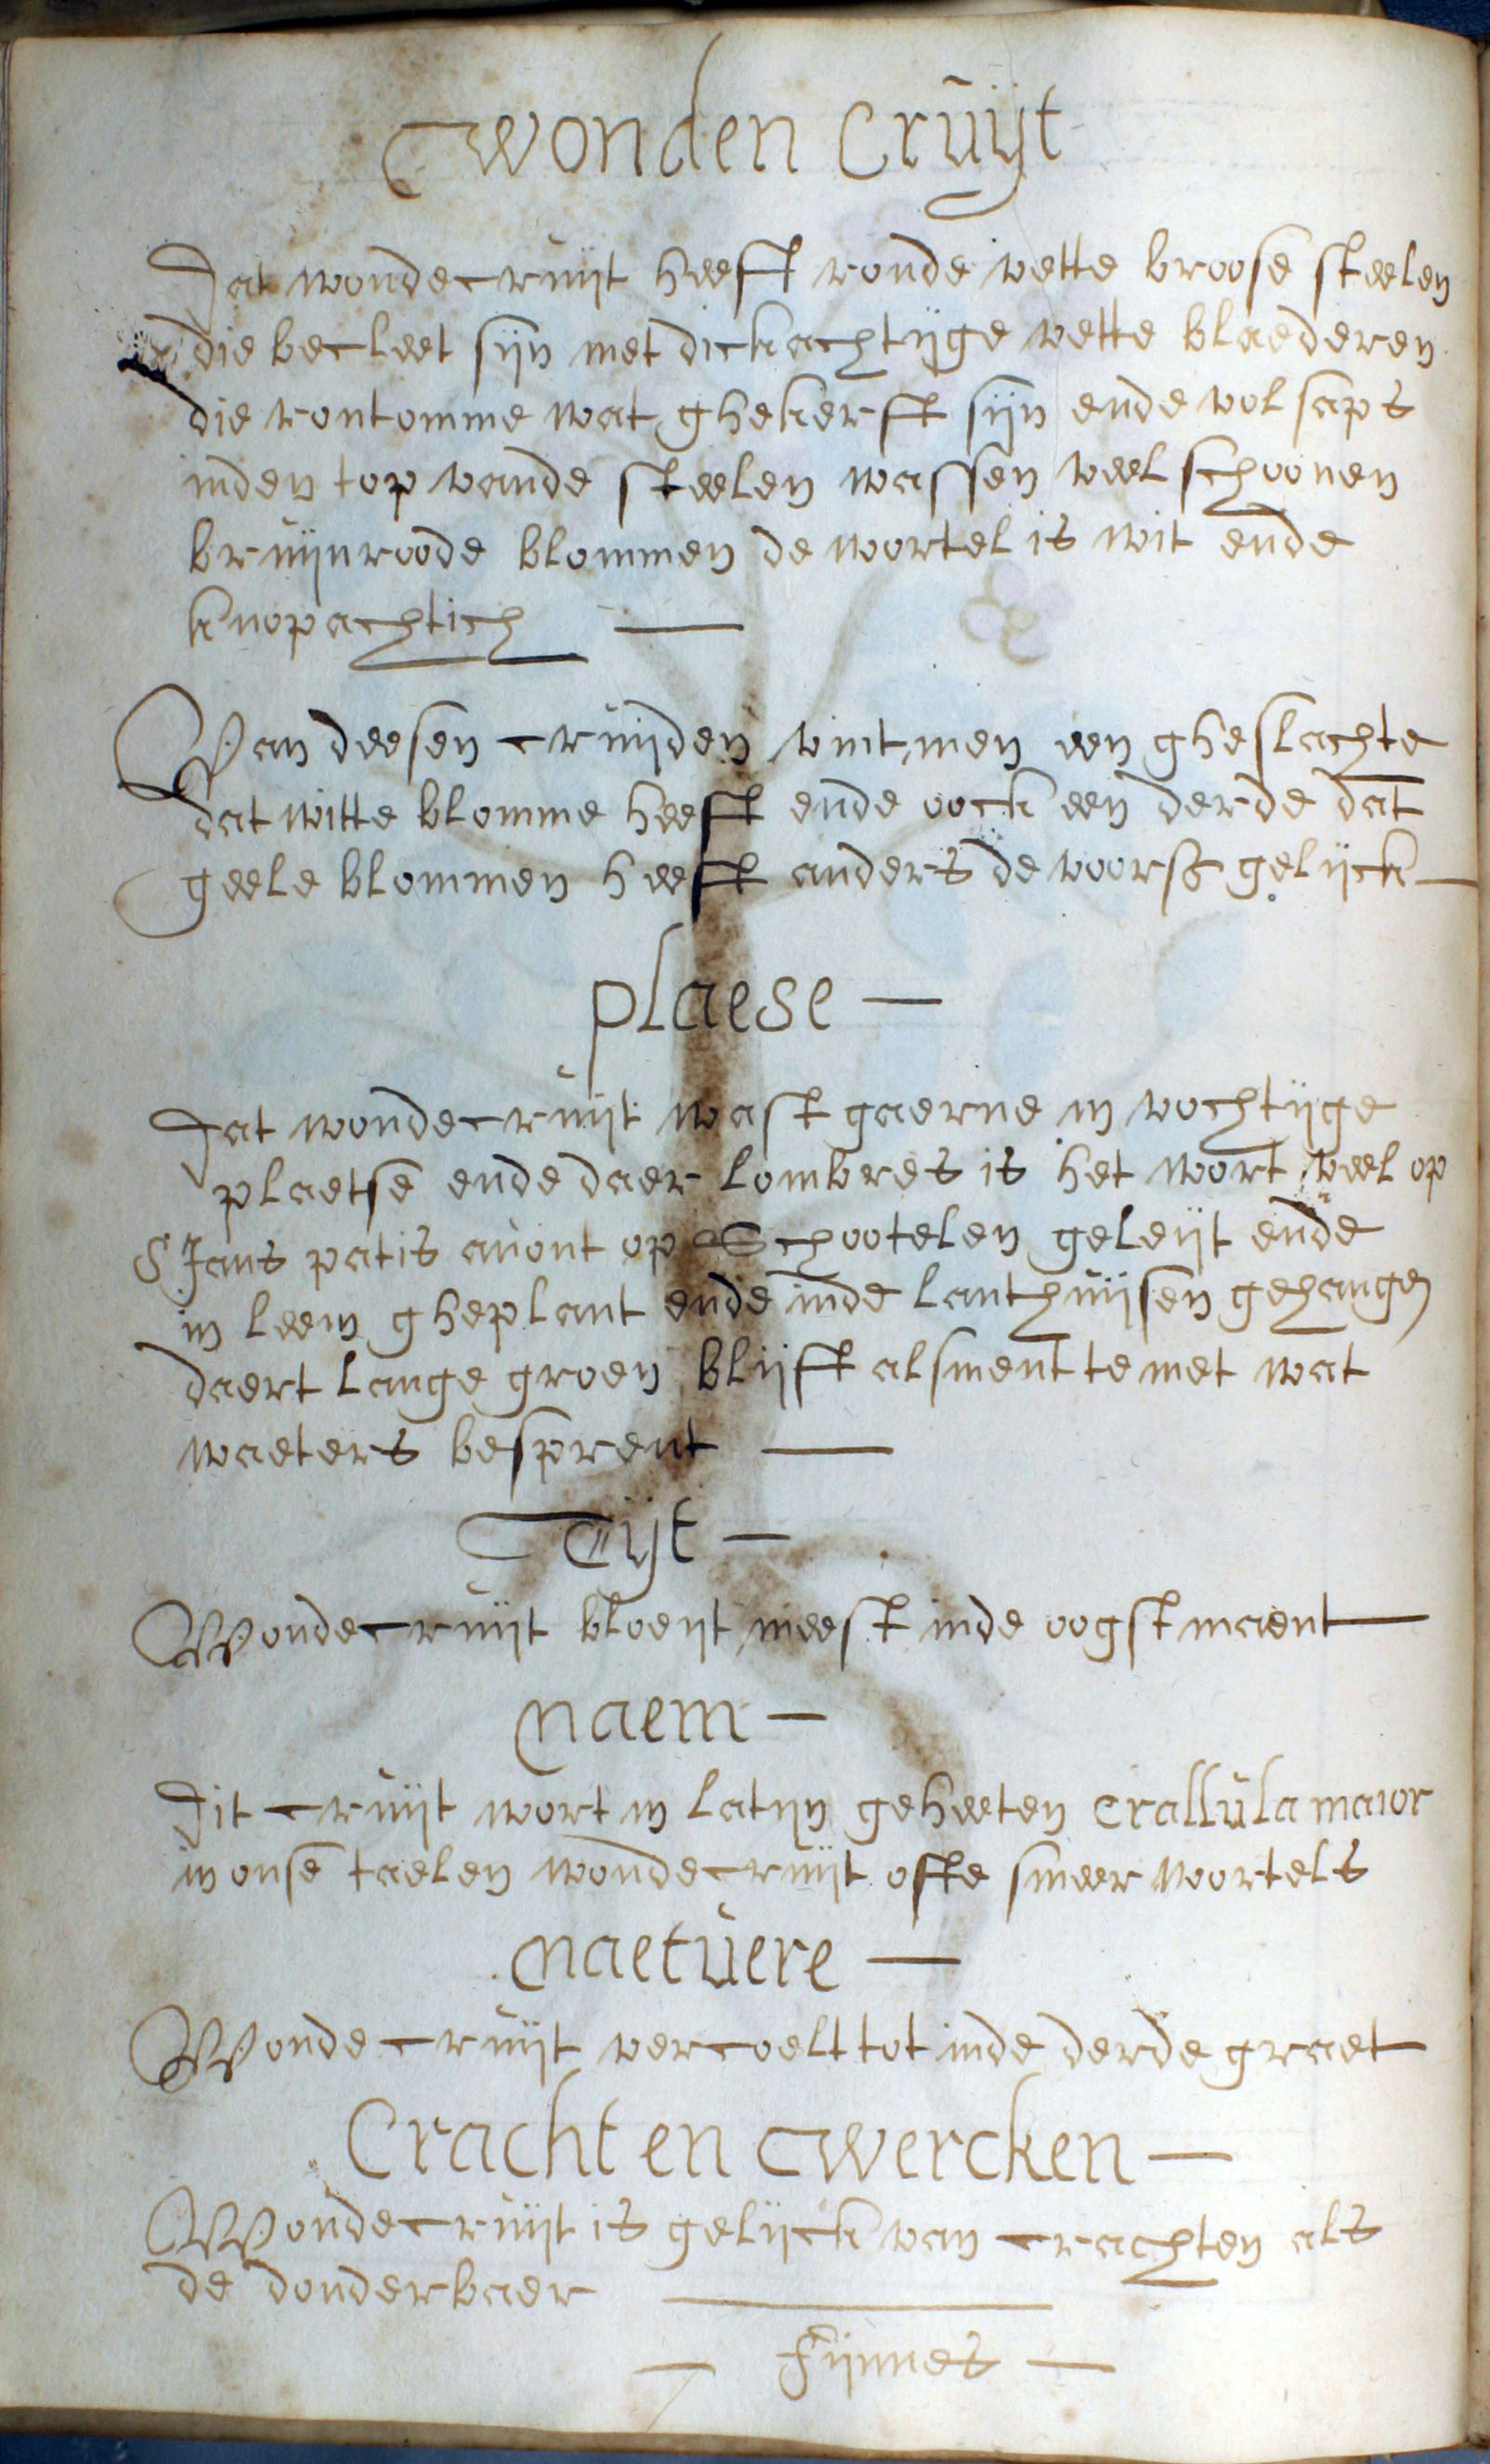 Wonden Cruijt
Dat wondecruijt heeft ronde vette broose steelen
die becleet sijn met dickachtijge vette blaederen
die rontomme wat ghekerft sijn ende vol saps
inden top vande steelen wassen veel schoonen
bruijnroode blommen de wortel is wit ende
knopachtich —
Van deesen cruijden vint men een gheslachte
dat witte blomme heeft ende oock een derde dat
geele blommen heeft anders de voors gelijck —
plaese —
Dat wondecruijt wast gaerne in vochtijge
plaetse ende daer lombres is het wort veel op
S Jans patis avont op Schootelen geleijt ende
in leem gheplant ende inde lanthuijsen gehangen
daert lange groen blijft alsment temet wat
waeters besprent —
Tijt —
Wondecruijt bloeijt meest inde oogstmaent —
Naem —
Dit cruijt wort in latijn geheeten Crallula maior
in onse taelen wondecruijt ofte smeerwortels
Naetuere —
Wondecruijt vercoelt tot inde derde graet
Cracht en Wercken —
Wondecruijt is gelijck van crachten als
de donderbaer —
— Fijnnes —